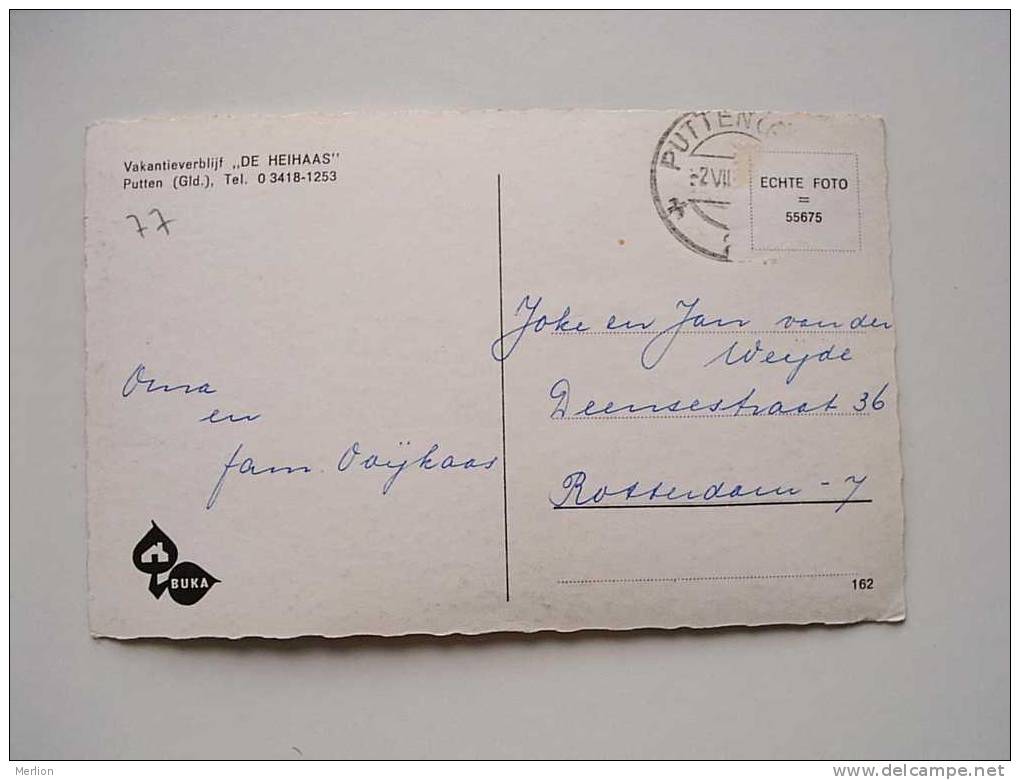 Vakantieverblijf „DE HEIHAAS”
Putten (Gld.), Tel. 0 3418-1253
77
Oma
en
fam. Ooijkaas
BUKA
PUTTEN
2 VII
ECHTE FOTO
=
55675
Joke en Jan van der
Weijde
Deensestraat 36
Rotterdam - 7
162
Merlion
www.delcampe.net